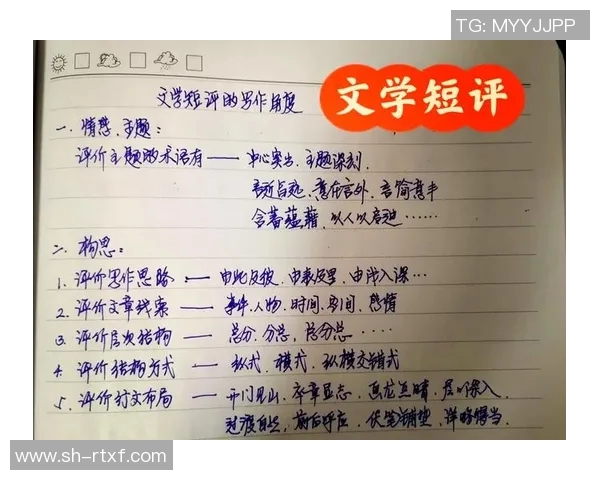 TG: MYYJJPP
文学短评
文学短评的写作角度
一、情感、主题：
评价主题的术语有——中心突出、主题深刻、
言近旨远、意在言外、言简意丰
含蓄蕴藉、以人以启迪……
二、构思：
1、评价写作思路——由此及彼、由表及里、由浅入深…
2、评价文章线索——事件、人物、时间、空间、感情
3、评价层次结构——总分、分总、总分总……
4、评价结构方式——纵式、横式、纵横交错式
5、评价行文布局——开门见山、卒章显志、画龙点睛、层层深入
过渡自然、前后呼应、伏笔铺垫、详略得当。
www.sh-rtxf.com